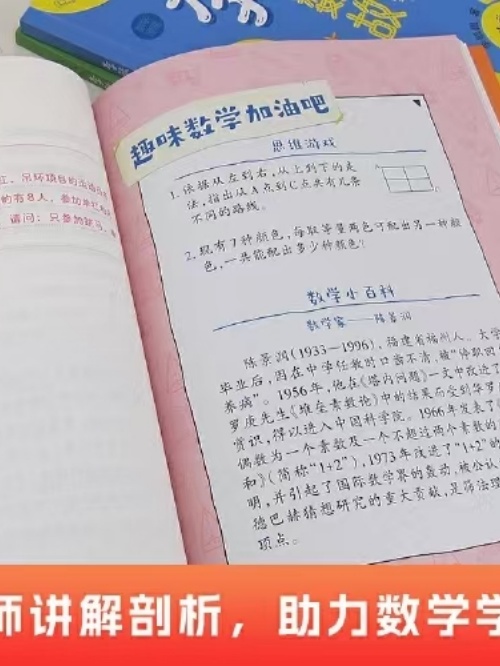 数
趣味数学加油吧
思维游戏
1. 依据从左到右,从上到下的走
法,指出从A点到C点共有几条
不同的路线。
2. 现有7种颜色,每取等量两色可配出另一种颜
色,一共能配出多少种颜色?
数学小百科
数学家——陈景润
陈景润(1933—1996),福建省福州人。大学
毕业后,因在中学任教时口齿不清,被“停职回
养病”。1956年,他在《塔内问题》一文中改进了
罗庚先生《堆垒素数论》中的结果而受到华罗
赏识,得以进入中国科学院。1966年发表了
偶数为一个素数及一个不超过两个素数的
和》(简称“1+2”),1973年改进了“1+2”的
明,并引起了国际数学界的轰动,被公认
德巴赫猜想研究的重大贡献,是筛法理
顶点。
江、吊环项目的运动员
的有8人,参加单杠
请问:只参加跳马、
师讲解剖析,助力数学学